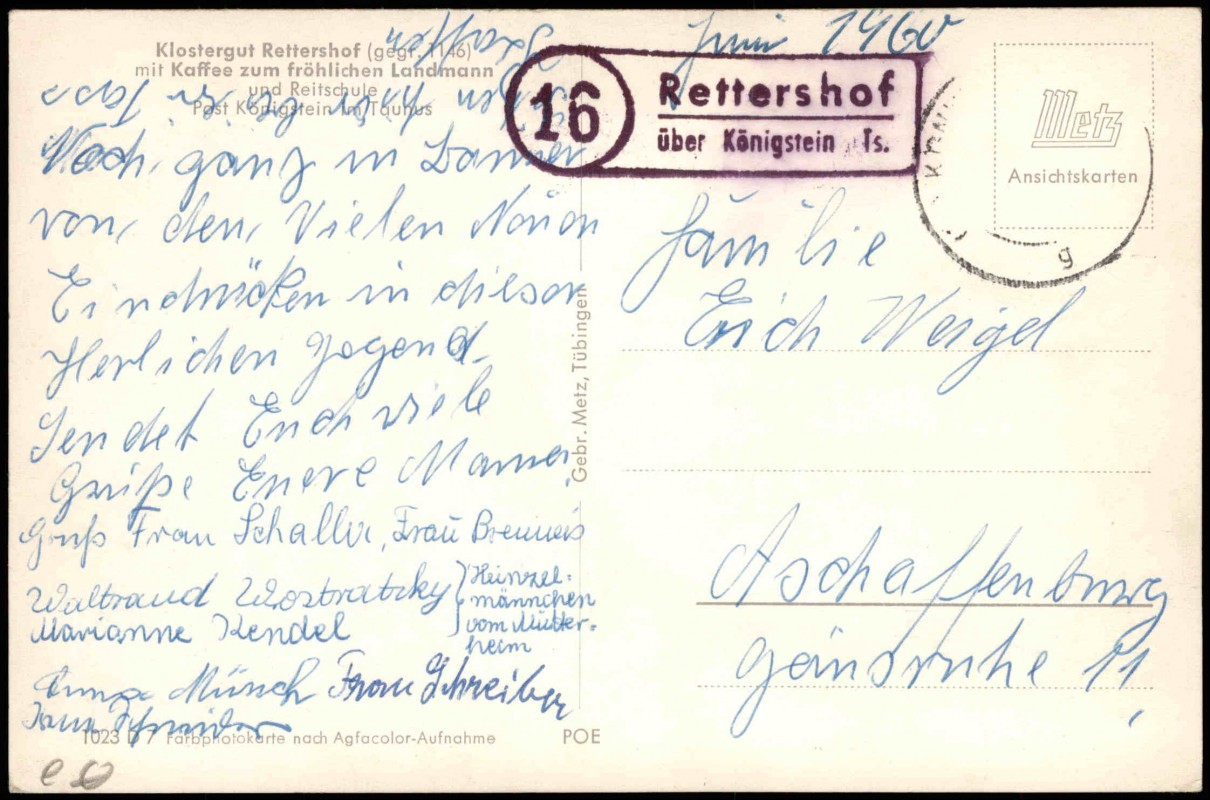 Juni 1960
Klostergut Rettershof (gegr. 1146)
mit Kaffee zum fröhlichen Landmann
und Reitschule
Post Königstein im Taunus
16
Rettershof
über Königstein Ts.
Metz
Ansichtskarten
Noch ganz im Banne
von, den, Vielen Neuen
Eindrücken in dieser
Herlichen Gegend
Sendet Euch viele
Grüße Euere Mama.
Gruß Frau Schaller, Frau
Waltraud Wostratzky
Marianne Kendel
Heinzel-
männchen
vom Mütter-
heim
Münch Frau Schreiber
Frau Schneider
1023 D 7 Farbphotokarte nach Agfacolor-Aufnahme
POE
Gebr. Metz, Tübingen
Familie
Erich Weigel
Aschaffenburg
Gänsruhe 11